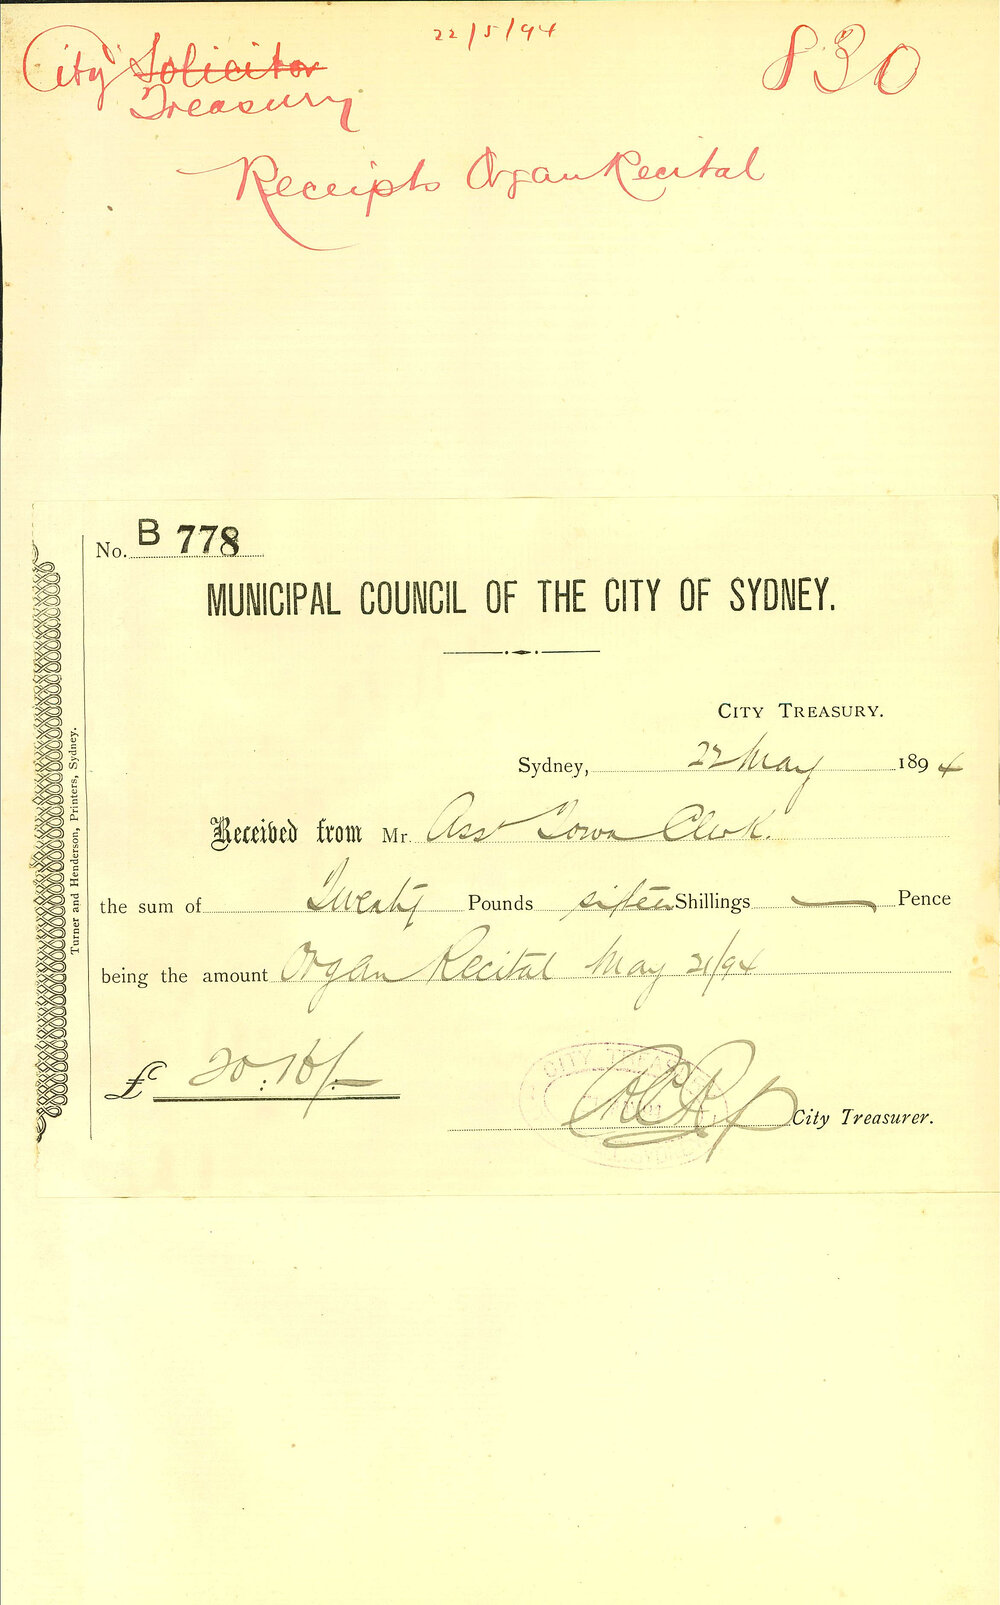 22/5/94
City Solicitor 830
Treasury
Receipts Organ Recital
No. B 778
MUNICIPAL COUNCIL OF THE CITY OF SYDNEY.
CITY TREASURY.
Sydney, 22 May 1894
Received from Mr. Asst Town Clerk.
the sum of Twenty Pounds sixteen Shillings — Pence
being the amount Organ Recital May 21/94
£ 20:16/-
City Treasurer.
CITY TREASURY
SYDNEY
Turner and Henderson, Printers, Sydney.